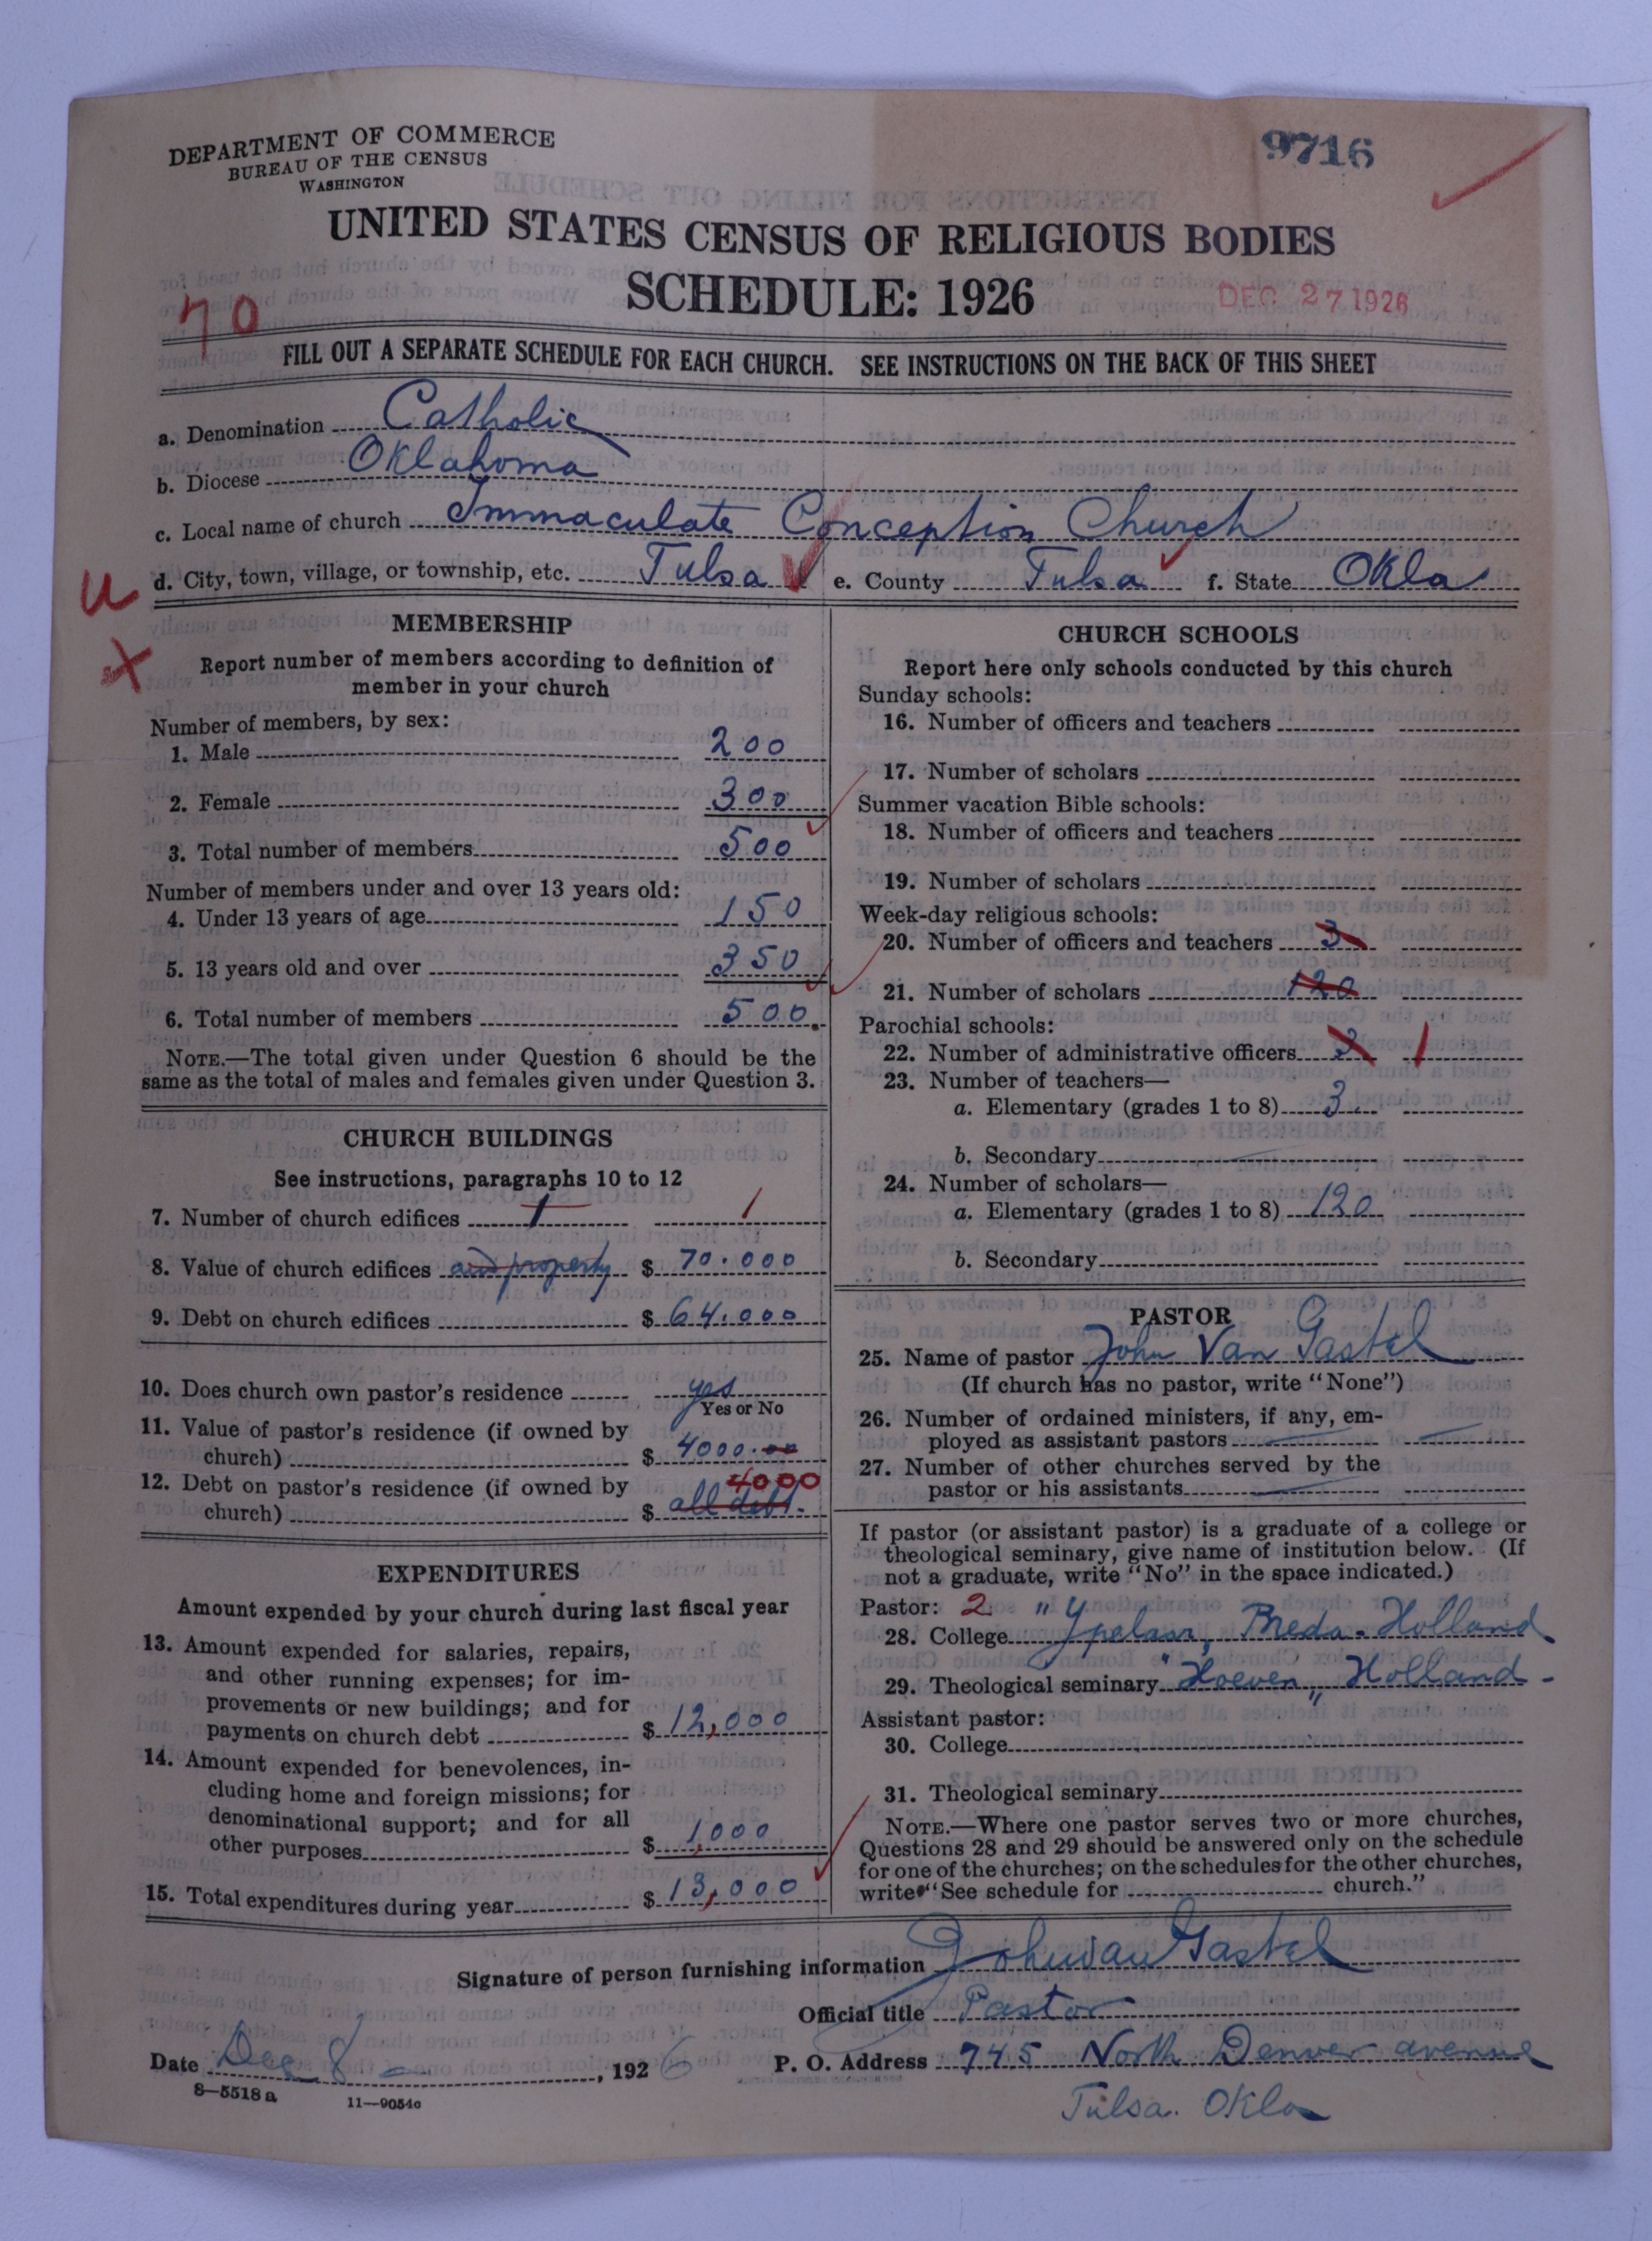 DEPARTMENT OF COMMERCE
BUREAU OF THE CENSUS
WASHINGTON
9716
UNITED STATES CENSUS OF RELIGIOUS BODIES
SCHEDULE: 1926
DEC 27 1926
70
FILL OUT A SEPARATE SCHEDULE FOR EACH CHURCH. SEE INSTRUCTIONS ON THE BACK OF THIS SHEET
a. Denomination Catholic
b. Diocese Oklahoma
c. Local name of church Immaculate Conception Church
d. City, town, village, or township, etc. Tulsa e. County Tulsa f. State Okla
U
X
MEMBERSHIP
Report number of members according to definition of
member in your church
Number of members, by sex:
1. Male 200
2. Female 300
3. Total number of members 500
Number of members under and over 13 years old:
4. Under 13 years of age 150
5. 13 years old and over 350
6. Total number of members 500.
NOTE.—The total given under Question 6 should be the
same as the total of males and females given under Question 3.
CHURCH BUILDINGS
See instructions, paragraphs 10 to 12
7. Number of church edifices 1 1
8. Value of church edifices and property $ 70.000
9. Debt on church edifices $ 64.000
10. Does church own pastor's residence yes
Yes or No
11. Value of pastor's residence (if owned by
church) $ 4000.00
12. Debt on pastor's residence (if owned by 4000
church) $ all debt.
EXPENDITURES
Amount expended by your church during last fiscal year
13. Amount expended for salaries, repairs,
and other running expenses; for im-
provements or new buildings; and for
payments on church debt $ 12,000
14. Amount expended for benevolences, in-
cluding home and foreign missions; for
denominational support; and for all
other purposes $ 1,000
15. Total expenditures during year $ 13,000
CHURCH SCHOOLS
Report here only schools conducted by this church
Sunday schools:
16. Number of officers and teachers
17. Number of scholars
Summer vacation Bible schools:
18. Number of officers and teachers
19. Number of scholars
Week-day religious schools:
20. Number of officers and teachers 3
21. Number of scholars 120
Parochial schools:
22. Number of administrative officers 3 1
23. Number of teachers—
a. Elementary (grades 1 to 8) 3
b. Secondary
24. Number of scholars—
a. Elementary (grades 1 to 8) 120
b. Secondary
PASTOR
25. Name of pastor John Van Gastel
(If church has no pastor, write "None")
26. Number of ordained ministers, if any, em-
ployed as assistant pastors
27. Number of other churches served by the
pastor or his assistants
If pastor (or assistant pastor) is a graduate of a college or
theological seminary, give name of institution below. (If
not a graduate, write "No" in the space indicated.)
Pastor: 2
28. College "Ypelaar, Breda. Holland
29. Theological seminary "Hoeven" Holland -
Assistant pastor:
30. College
31. Theological seminary
NOTE.—Where one pastor serves two or more churches,
Questions 28 and 29 should be answered only on the schedule
for one of the churches; on the schedules for the other churches,
write "See schedule for church."
Signature of person furnishing information John van Gastel
Official title Pastor
Date Dec 8 , 1926 P. O. Address 745 North Denver avenue
Tulsa. Okla
8—5518 a 11—9054c